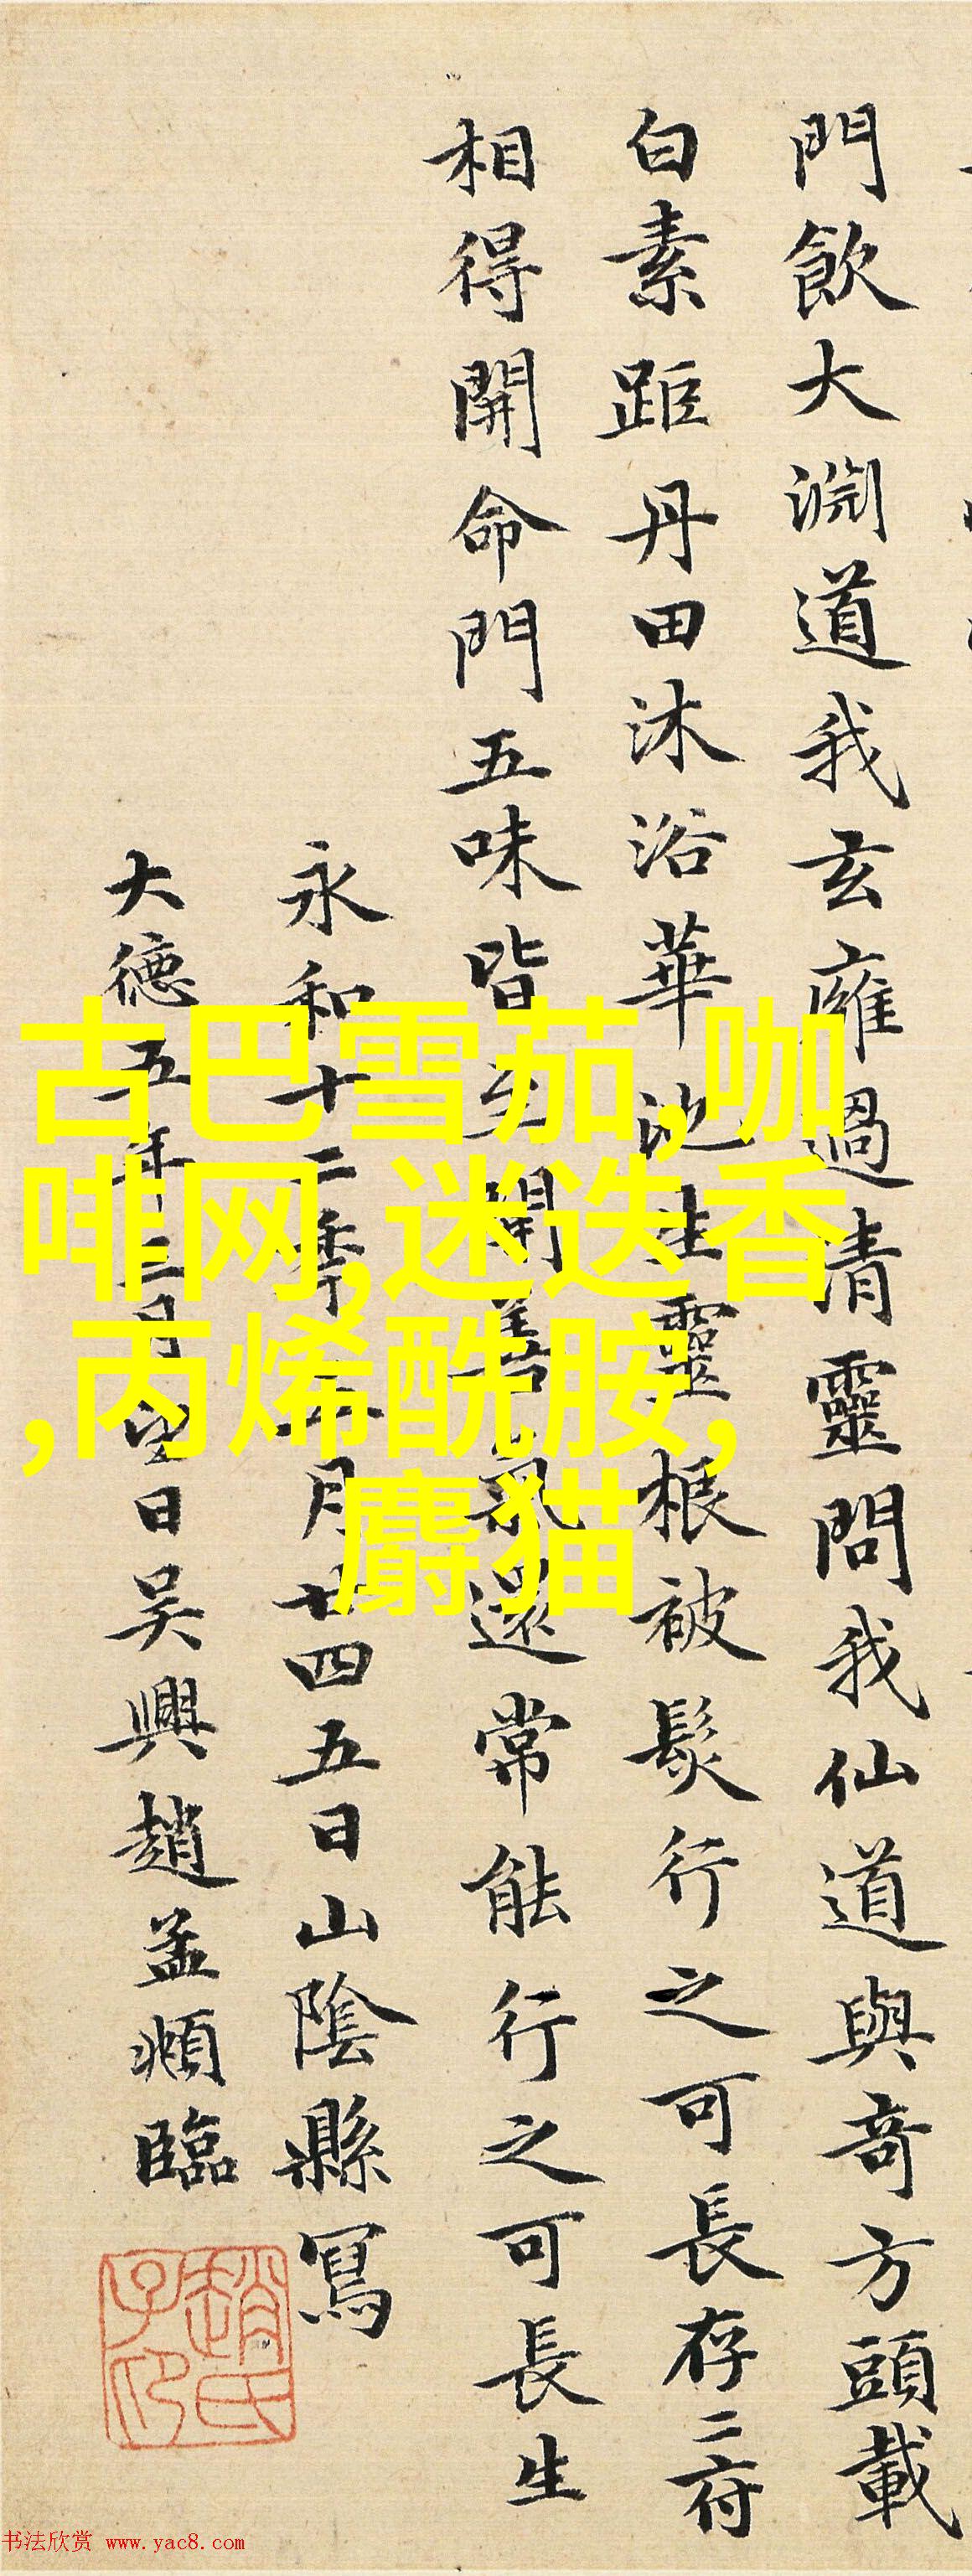 門飲大淵道我玄廱過清靈問我仙道與奇方頭載
白素距丹田沐浴華池生靈根被髮行之可長存二府
相得開命門五味皆至開善氣還常能行之可長生
永和十二年五月廿四五日山陰縣寫
大德五年三月望日吴興趙孟頫臨
趙氏子印
古巴雪茄,咖
啡网,迷迭香
,丙烯酰胺,
麝猫
书法欣赏 www.yac8.com